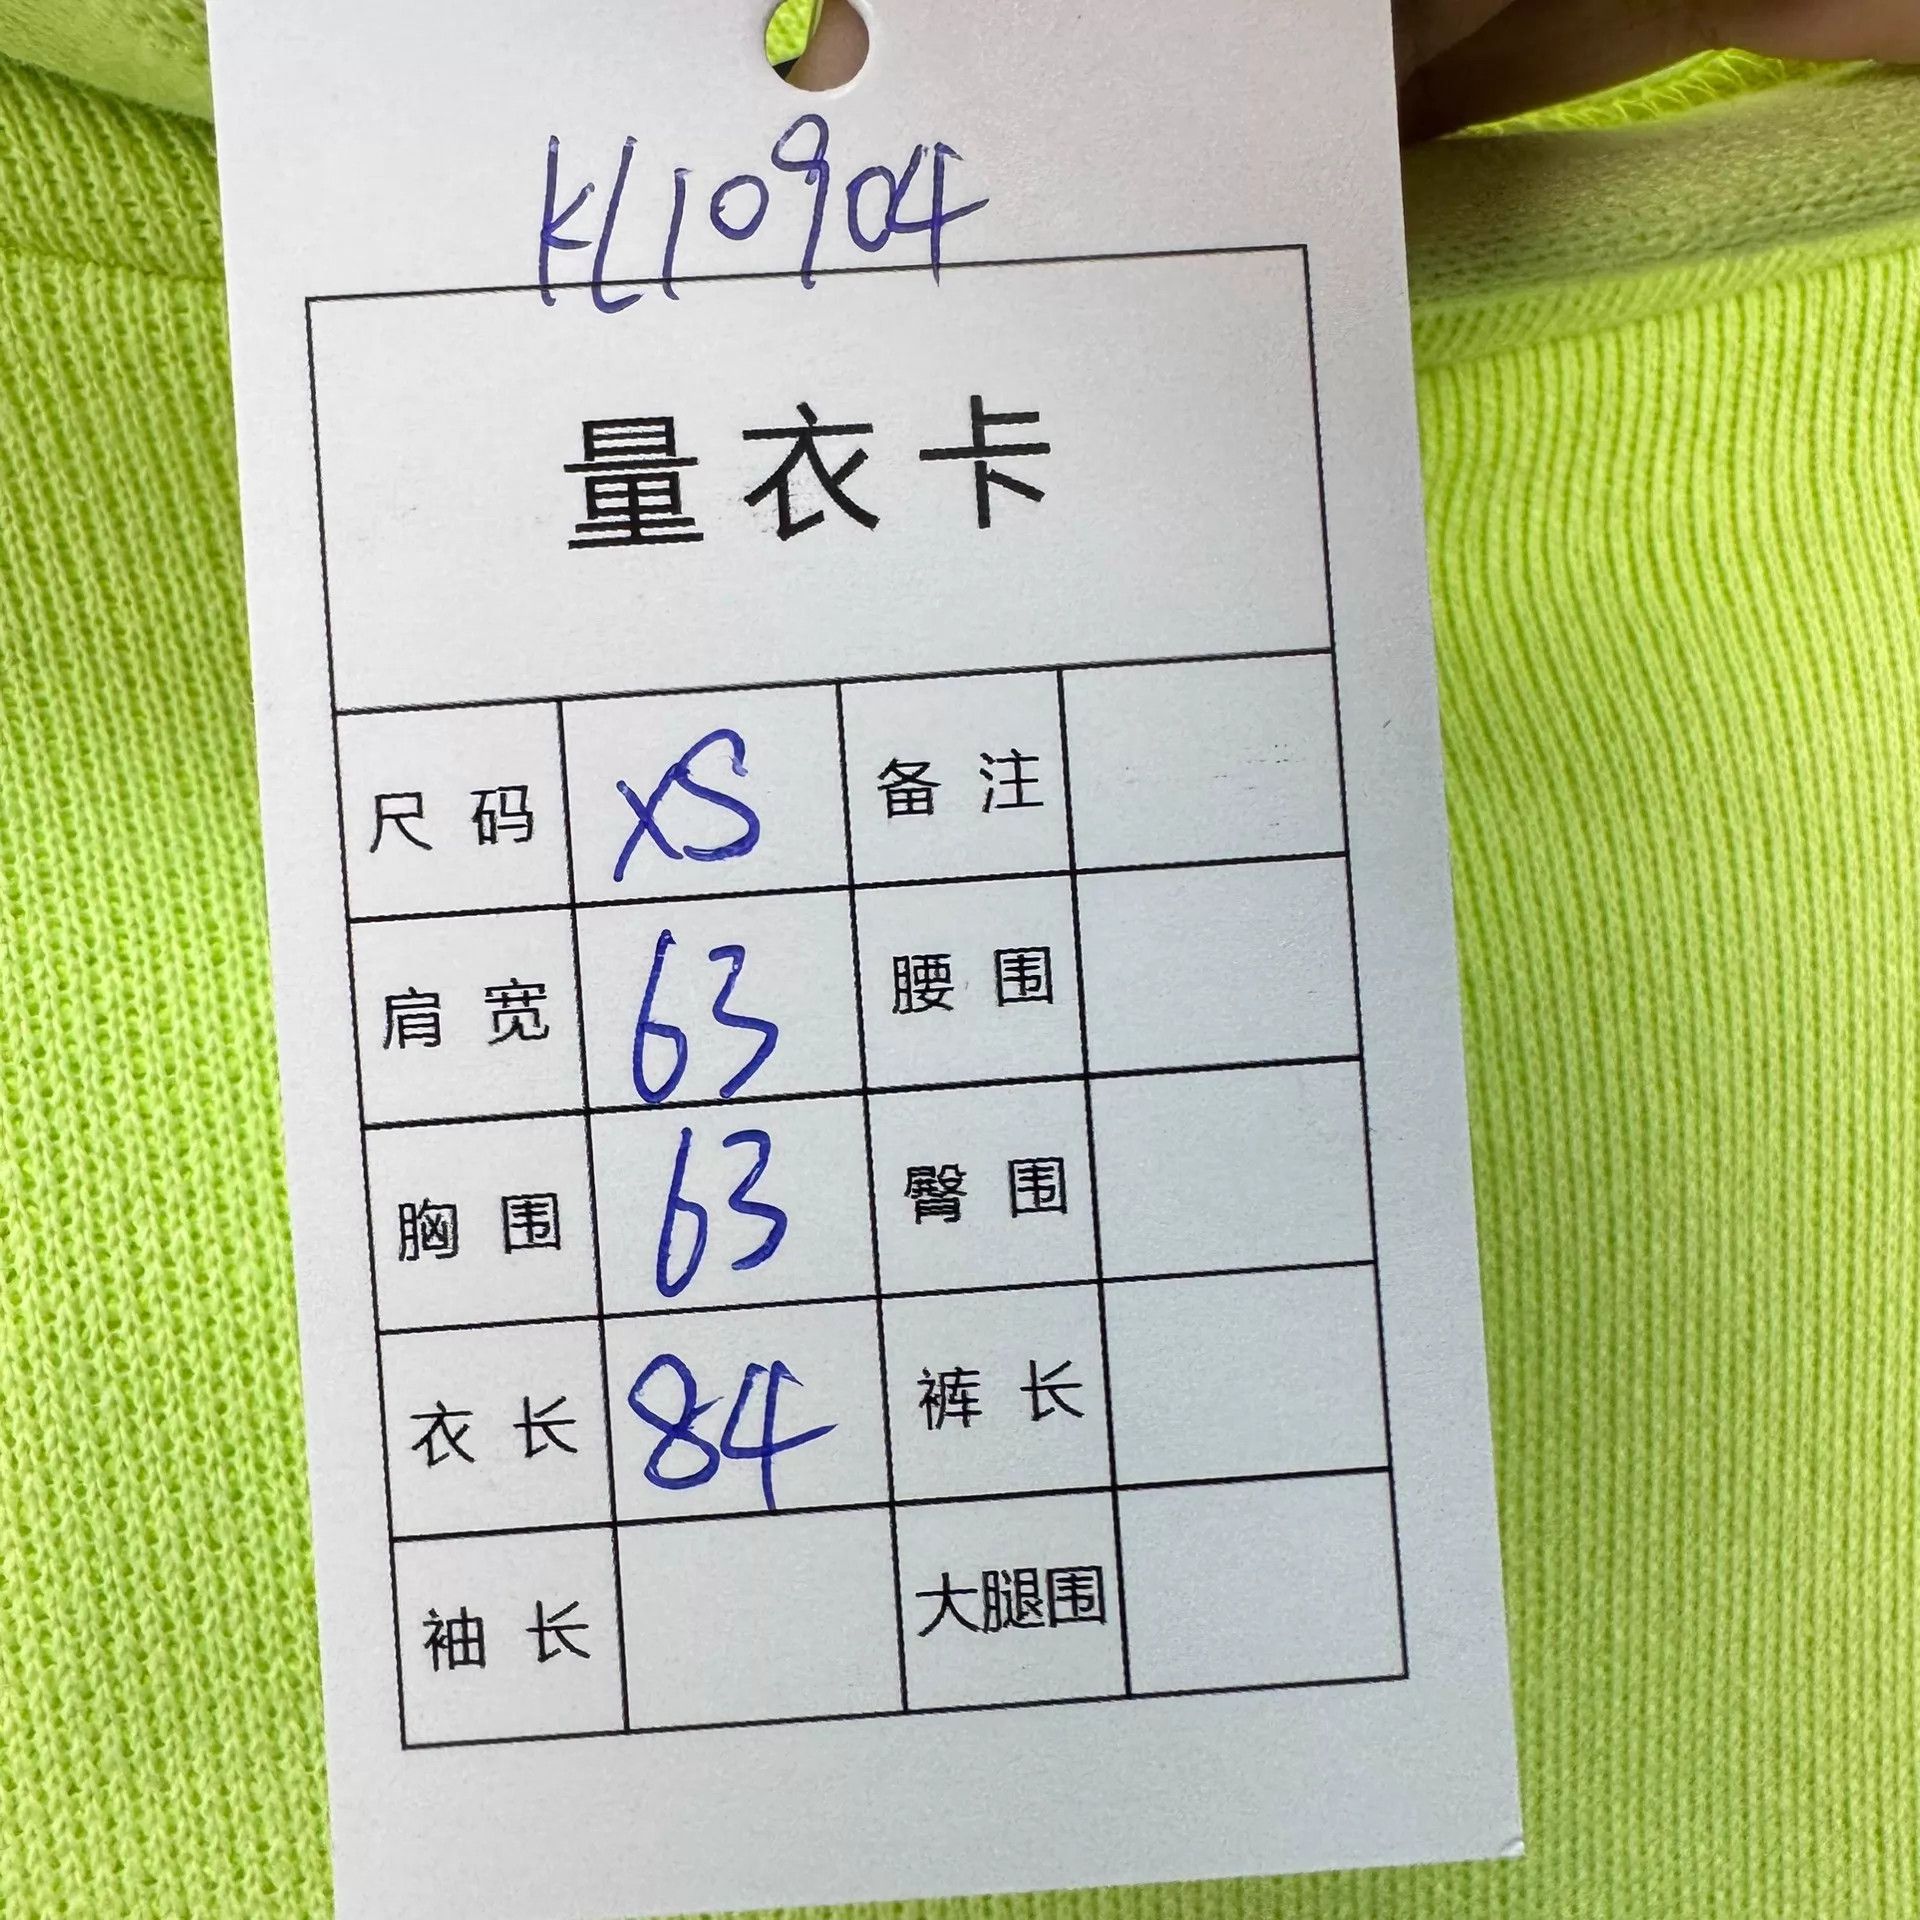 KL10904
量衣卡
尺码 XS 备注
肩宽 63 腰围
胸围 63 臀围
衣长 84 裤长
袖长 大腿围